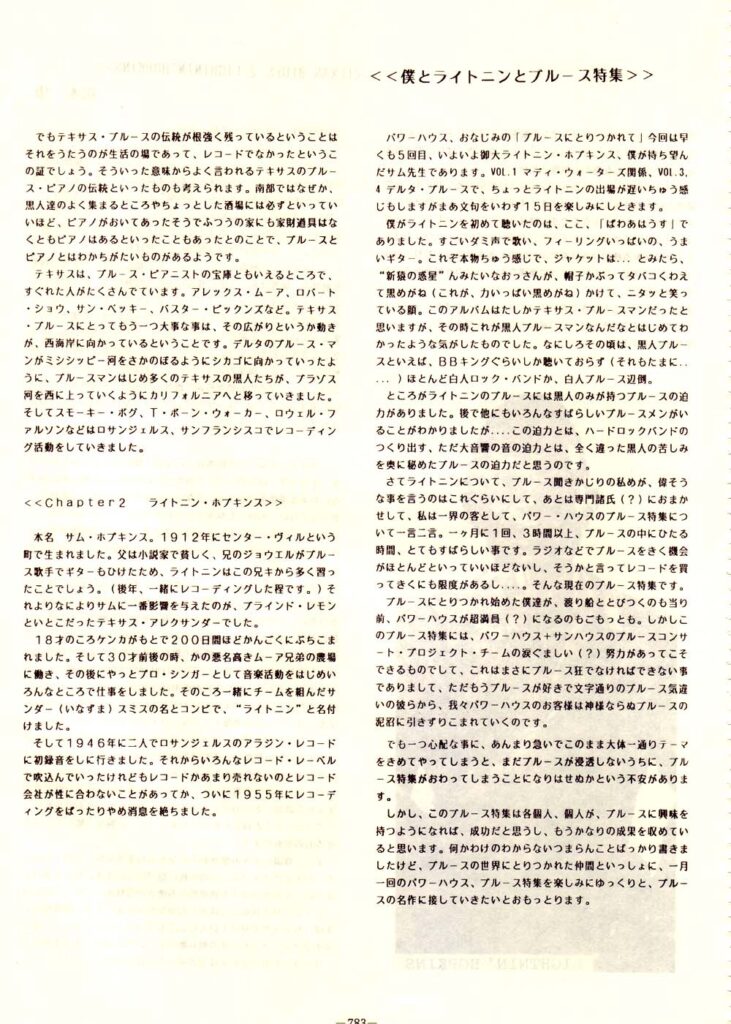 <<僕とライトニンとブルース特集>>
でもテキサス・ブルースの伝統が根強く残っているということは
それをうたうのが生活の場であって、レコードでなかったというこ
の証でしょう。そういった意味からよく言われるテキサスのブルー
ス・ピアノの伝統といったものも考えられます。南部ではなぜか、
黒人達のよく集まるところやちょっとした酒場には必ずといってい
いほど、ピアノがおいてあったそうでふつうの家にも家財道具はな
くともピアノはあるといったこともあったとのことで、ブルースと
ピアノとはわかちがたいものがあるようです。
テキサスは、ブルース・ピアニストの宝庫ともいえるところで、
すぐれた人がたくさんでています。アレックス・ムーア、ロバート
・ショウ、サン・ベッキー、バスター・ピックンズなど。テキサス
・ブルースにとってもう一つ大事な事は、その広がりというか動き
が、西海岸に向かっているということです。デルタのブルース・マ
ンがミシシッピー河をさかのぼるようにシカゴに向かっていったよ
うに、ブルースマンはじめ多くのテキサスの黒人たちが、ブラゾス
河を西に上っていくようにカリフォルニアへと移っていきました。
そしてスモーキー・ホグ、T・ボーン・ウォーカー、ロウェル・フ
ァルソンなどはロサンジェルス、サンフランシスコでレコーディン
グ活動をしていきました。
<<Chapter2 ライトニン・ホプキンス>>
本名 サム・ホプキンス。1912年にセンター・ヴィルという
町で生まれました。父は小説家で貧しく、兄のジョウエルがブルー
ス歌手でギターもひけたため、ライトニンはこの兄キから多く習っ
たことでしょう。(後年、一緒にレコーディングした程です。)そ
れよりなによりサムに一番影響を与えたのが、ブラインド・レモン
といとこだったテキサス・アレクサンダーでした。
18才のころケンカがもとで200日間ほどかんごくにぶちこ
まれました。そして30才前後の時、かの悪名高きムーア兄弟の農場
に働き、その後にやっとプロ・シンガーとして音楽活動をはじめい
ろんなところで仕事をしました。そのころ一緒にチームを組んだサ
ンダー(いなずま)スミスの名とコンビで、“ライトニン”と名付
けました。
そして1946年に二人でロサンジェルスのアラジン・レコード
に初録音をしに行きました。それからいろんなレコード・レーベル
で吹込んでいったけれどもレコードがあまり売れないのとレコード
会社が性に合わないことがあってか、ついに1955年にレコーデ
ィングをぱったりやめ消息を絶ちました。
パワーハウス、おなじみの「ブルースにとりつかれて」今回は早
くも5回目、いよいよ御大ライトニン・ホプキンス、僕が待ち望ん
だサム先生であります。VOL.1 マディ・ウォーターズ関係、VOL.3,
4 デルタ・ブルースで、ちょっとライトニンの出場が遅いちゅう感
じもしますがまあ文句をいわず15日を楽しみにしときます。
僕がライトニンを初めて聴いたのは、ここ、「ぱわあはうす」で
ありました。すごいダミ声で歌い、フィーリングいっぱいの、うま
いギター。これぞ本物ちゅう感じで、ジャケットは... とみたら、
“新猿の惑星”んみたいなおっさんが、帽子かぶってタバコくわえ
て黒めがね(これが、力いっぱい黒めがね)かけて、ニタッと笑っ
ている顔。このアルバムはたしかテキサス・ブルースマンだったと
思いますが、その時これが黒人ブルースマンなんだなとはじめてわ
かったような気がしたものでした。なにしろその頃は、黒人ブルー
スといえば、BBキングぐらいしか聴いておらず(それもたまに..
...)ほとんど白人ロック・バンドか、白人ブルース辺倒。
ところがライトニンのブルースには黒人のみが持つブルースの迫
力がありました。後で他にもいろんなすばらしいブルースメンがい
ることがわかりましたが....この迫力とは、ハードロックバンドの
つくり出す、ただ大音響の音の迫力とは、全く違った黒人の苦しみ
を奥に秘めたブルースの迫力だと思うのです。
さてライトニンについて、ブルース聞きかじりの私めが、偉そう
な事を言うのはこれぐらいにして、あとは専門諸氏(?)におまか
せして、私は一界の客として、パワー・ハウスのブルース特集につ
いて一言二言。一ヶ月に1回、3時間以上、ブルースの中にひたる
時間、とてもすばらしい事です。ラジオなどでブルースをきく機会
がほとんどといっていいほどないし、そうかと言ってレコードを買
ってきくにも限度があるし....。そんな現在のブルース特集です。
ブルースにとりつかれ始めた僕達が、渡り船ととびつくのも当り
前、パワーハウスが超満員(?)になるのもごもっとも。しかしこ
のブルース特集には、パワーハウス+サンハウスのブルースコンサ
ート・プロジェクト・チームの涙ぐましい(?)努力があってこそ
できるものでして、これはまさにブルース狂でなければできない事
でありまして、ただもうブルースが好きで文字通りのブルース気違
いの彼らから、我々パワーハウスのお客様は神様ならぬブルースの
泥沼に引きずりこまれていくのです。
でも一つ心配な事に、あんまり急いでこのまま大体一通りテーマ
をきめてやってしまうと、まだブルースが浸透しないうちに、ブル
ース特集がおわってしまうことになりはせぬかという不安がありま
す。
しかし、このブルース特集は各個人、個人が、ブルースに興味を
持つようになれば、成功だと思うし、もうかなりの成果を収めてい
ると思います。何かわけのわからないつまらんことばっかり書きま
したけど、ブルースの世界にとりつかれた仲間といっしょに、一月
一回のパワーハウス、ブルース特集を楽しみにゆっくりと、ブルー
スの名作に接していきたいとおもっとります。
LIGHTNIN' HOPKINS
—783—